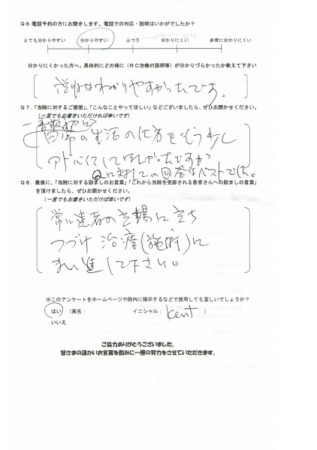 Q6.電話予約の方にお聞きします。電話での対応・説明はいかがでしたか？
とても分かりやすい 分かりやすい ふつう 分かりにくい 非常に分かりにくい
分かりにくかった方へ、具体的にどの様に（RC治療の説明等）が分かりづらかったか教えて下さい
説明はわかりやすかったです。
Q7.「当院に対するご感想」、「こんなことやってほしい」などございましたら、ぜひお聞かせください。
（一言でもお書きいただければ幸いです）
日常の生活の仕方をもう少し
アドバイスしてほしかったですが
Qに対しての回答はベストでした。
Q8.最後に、「当院に対する励ましのお言葉」「これから当院を受診される患者さんへの励ましの言葉」
を頂けましたら、ぜひお聞かせください。
（一言でもお書きいただければ幸いです）
常に患者の立場に立ち
つづけ 治療(施術)に
まい進して下さい。
※このアンケートをホームページや院内に掲示するなどで使用しても宜しいでしょうか？
はい （実名： イニシャル： kent ）
いいえ
ご協力ありがとうございました。
皆さまの温かいお言葉を励みに一層の努力をさせていただきます。